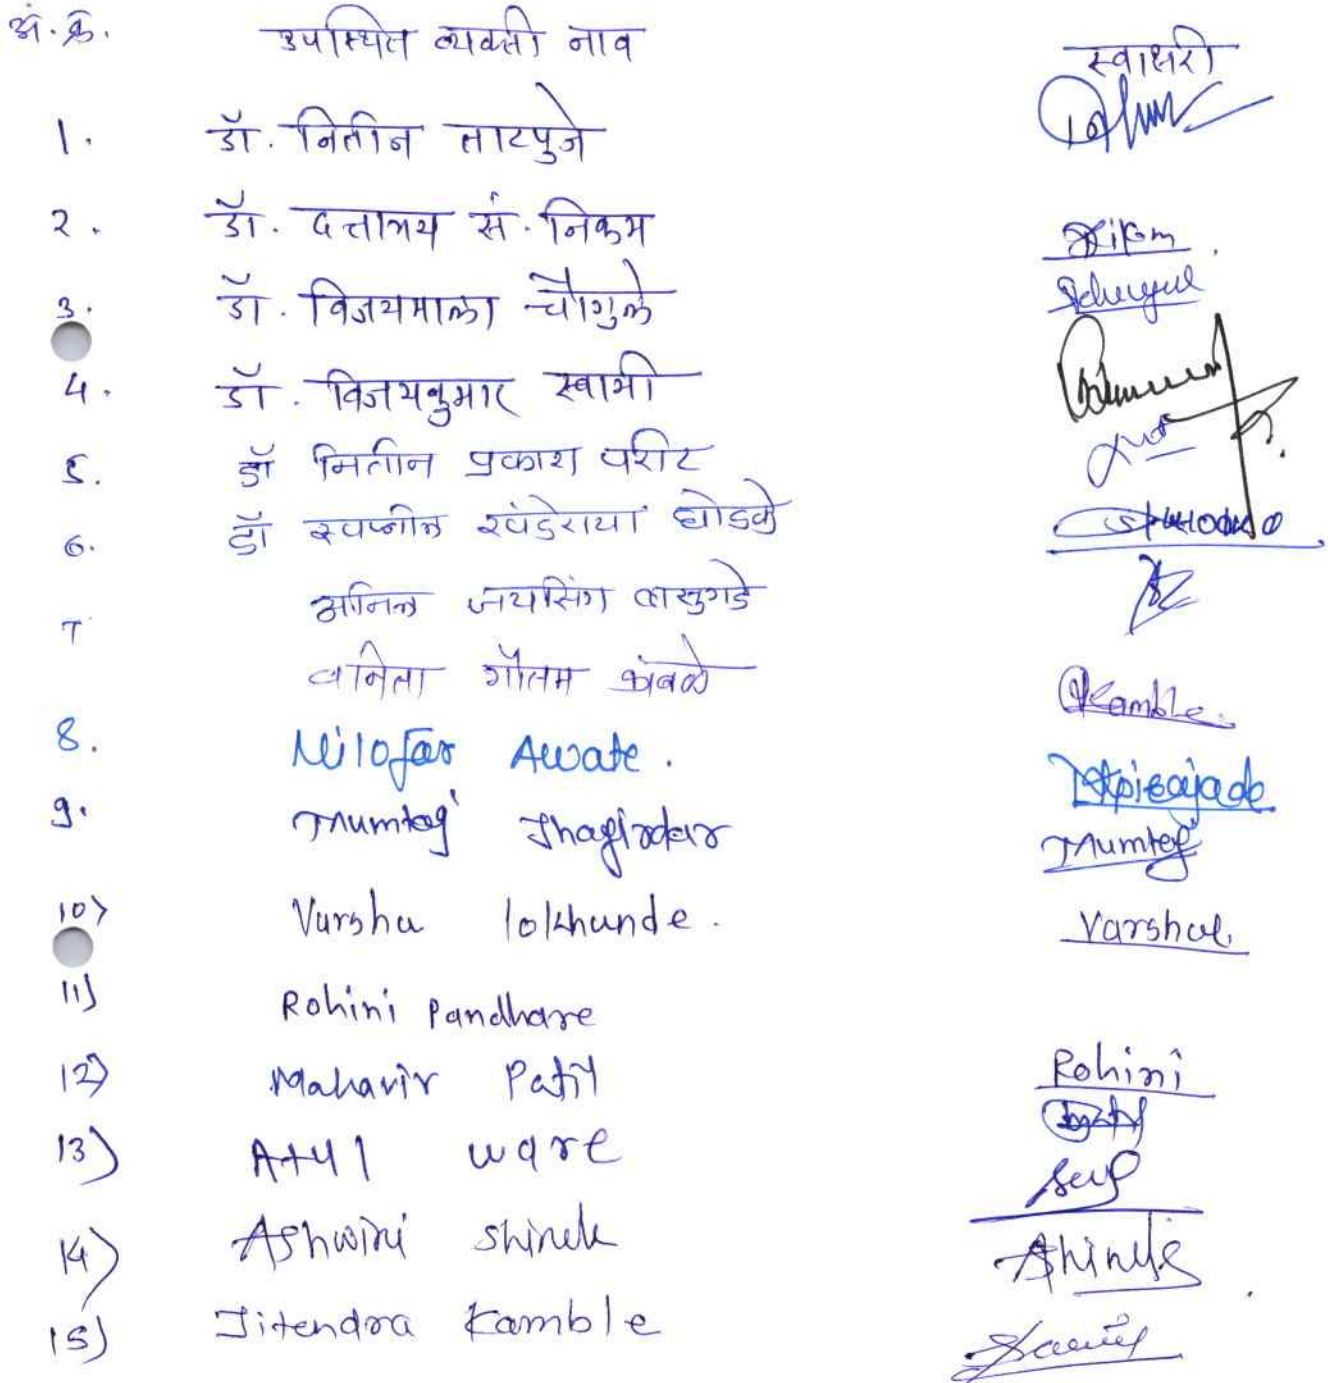 अ.क्र. उपस्थित व्यक्ती नाव स्वाक्षरी
1. डॉ. नितीन ताटपुजे
2. डॉ. दत्तात्रय सं. निकम Nikam
3. डॉ. विजयमाला चौगुले
4. डॉ. विजयकुमार स्वामी
5. डॉ नितीन प्रकाश परीट
6. डॉ स्वप्नील खंडेराया घोडके
7 अनिल जयसिंग लासुगडे
वनिता गौतम कांबळे Kamble
8. Nilofar Awate. Pirajade
9. Mumtaj Jhagirdar Mumtaj
10) Varsha lokhande. Varsha
11) Rohini Pandhare
12) Mahavir Patil Rohini
13) Atul ware
14) Ashwini shinde Ahinde
15) Jitendra Kamble